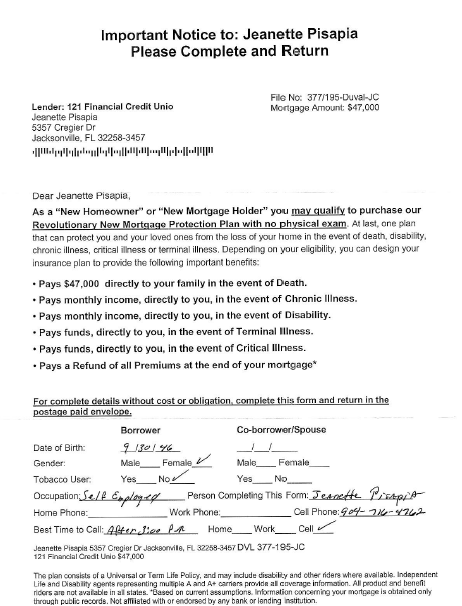 Important Notice to: Jeanette Pisapia
Please Complete and Return
File No: 377/195-Duval-JC
Mortgage Amount: $47,000
Lender: 121 Financial Credit Unio
Jeanette Pisapia
5357 Cregier Dr
Jacksonville, FL 32258-3457
Dear Jeanette Pisapia,
As a “New Homeowner” or “New Mortgage Holder” you may qualify to purchase our
Revolutionary New Mortgage Protection Plan with no physical exam. At last, one plan
that can protect you and your loved ones from the loss of your home in the event of death, disability,
chronic illness, critical illness or terminal illness. Depending on your eligibility, you can design your
insurance plan to provide the following important benefits:
• Pays $47,000 directly to your family in the event of Death.
• Pays monthly income, directly to you, in the event of Chronic Illness.
• Pays monthly income, directly to you, in the event of Disability.
• Pays funds, directly to you, in the event of Terminal Illness.
• Pays funds, directly to you, in the event of Critical Illness.
• Pays a Refund of all Premiums at the end of your mortgage*
For complete details without cost or obligation, complete this form and return in the
postage paid envelope.
Borrower Co-borrower/Spouse
Date of Birth: 9/30/46 __/__/__
Gender: Male___ Female ✓ Male___ Female___
Tobacco User: Yes___ No ✓ Yes___ No___
Occupation: Self Employed Person Completing This Form: Jeanette Pisapia
Home Phone: Work Phone: Cell Phone: 904-716-4762
Best Time to Call: After 3:00 P.M Home___ Work___ Cell ✓
Jeanette Pisapia 5357 Cregier Dr Jacksonville, FL 32258-3457 DVL 377-195-JC
121 Financial Credit Unio $47,000
The plan consists of a Universal or Term Life Policy, and may include disability and other riders where available. Independent
Life and Disability agents representing multiple A and A+ carriers provide all coverage information. All product and benefit
riders are not available in all states. *Based on current assumptions. Information concerning your mortgage is obtained only
through public records. Not affiliated with or endorsed by any bank or lending institution.